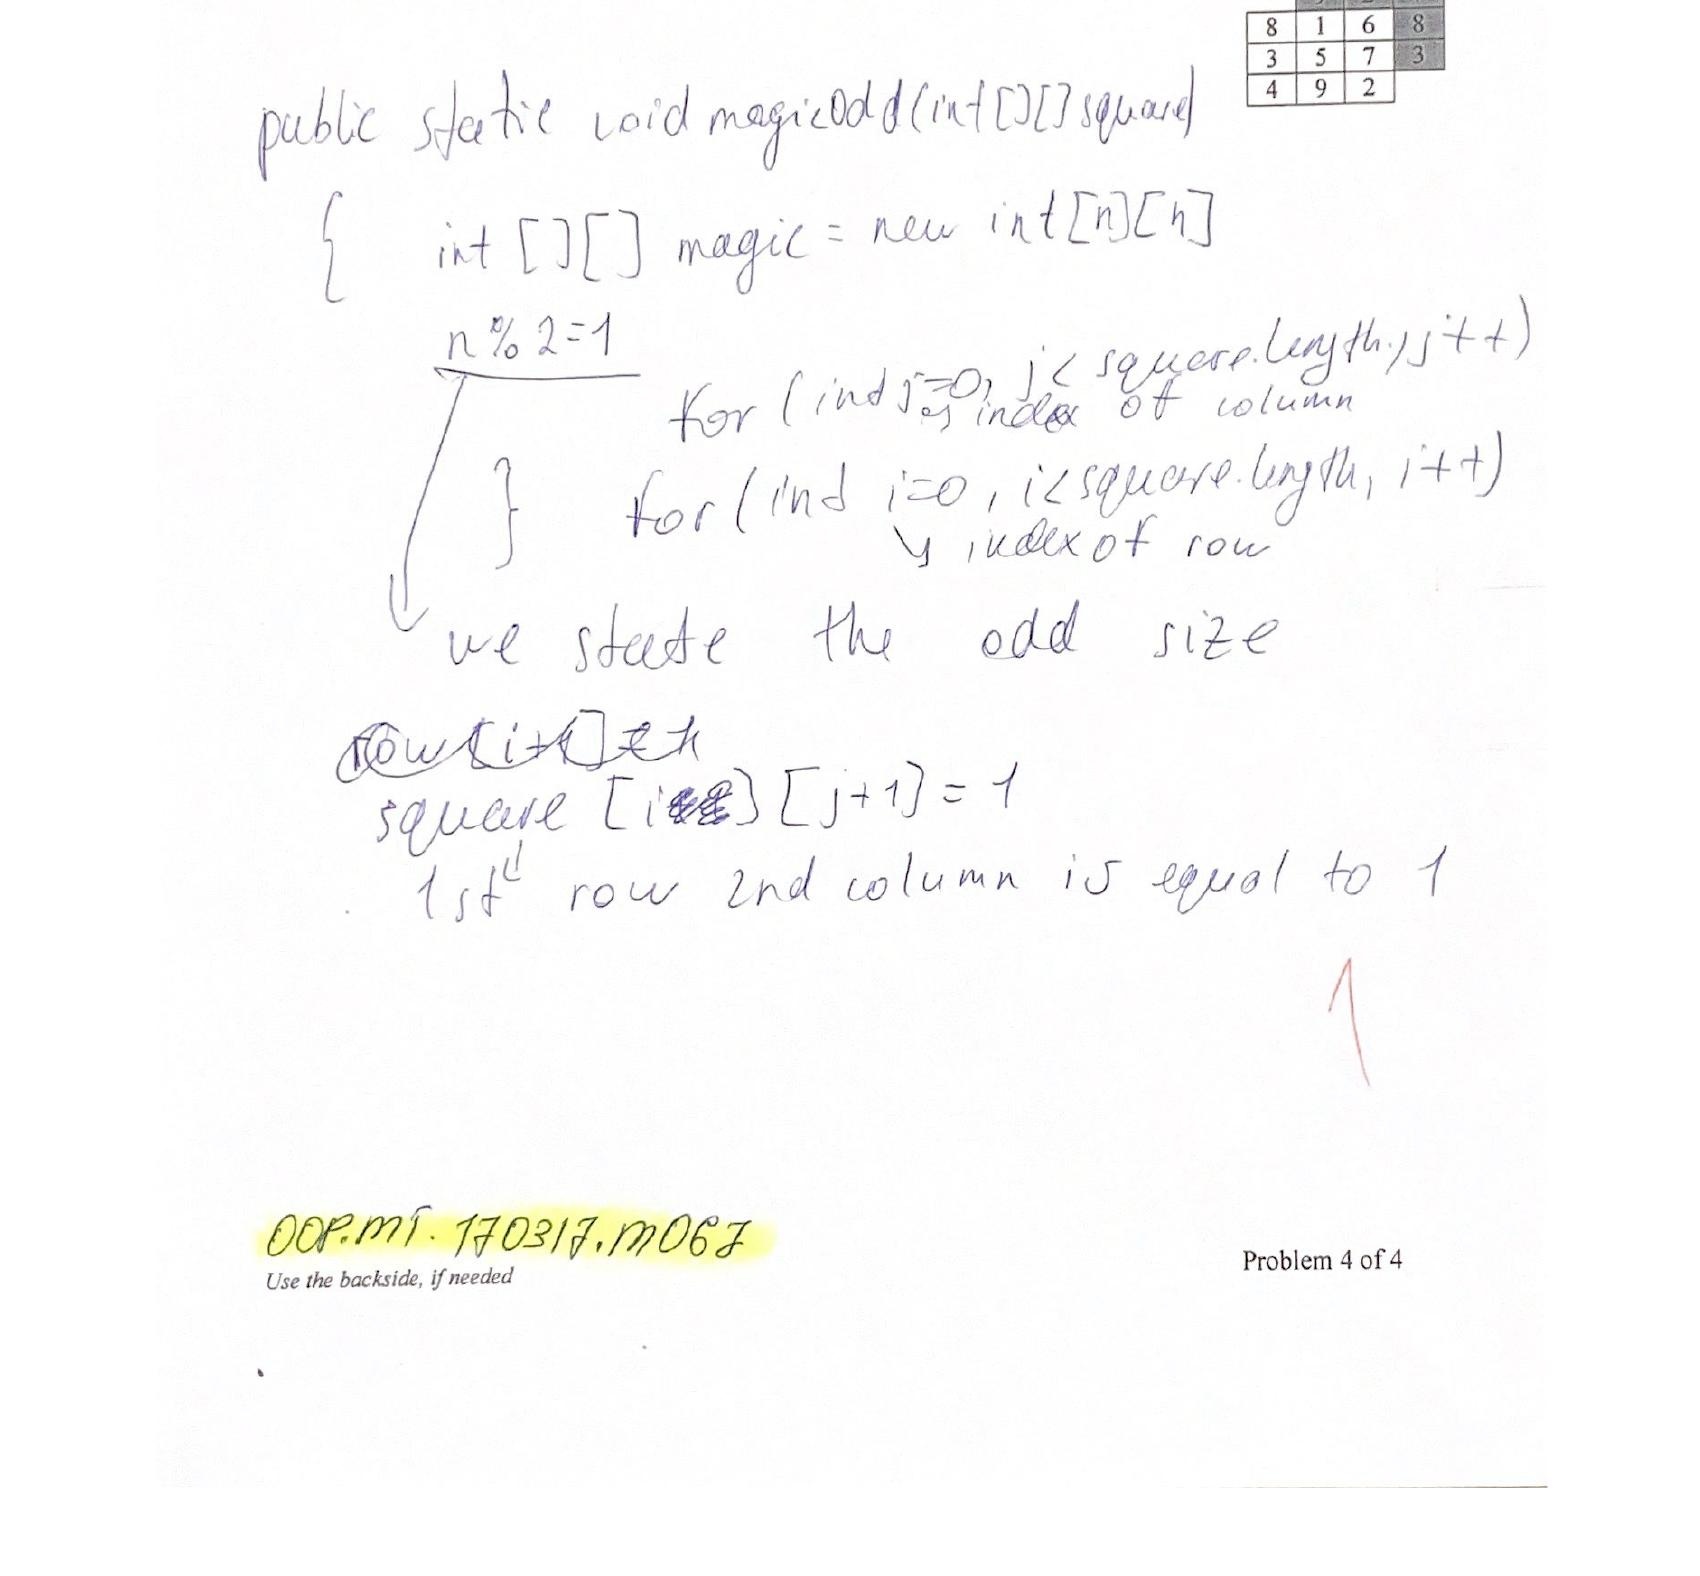 8 1 6 8
3 5 7 3
4 9 2
public static void magicOdd(int[][] square)
{ int [][] magic = new int[n][n]
n % 2 = 1
for (int j=0, j< square.length, j++)
index of column
} for (int i=0, i<square.length, i++)
index of row
we state the odd size
square [i] [j+1] = 1
1st row 2nd column is equal to 1
1
OOP.MT.170317.M067
Use the backside, if needed
Problem 4 of 4